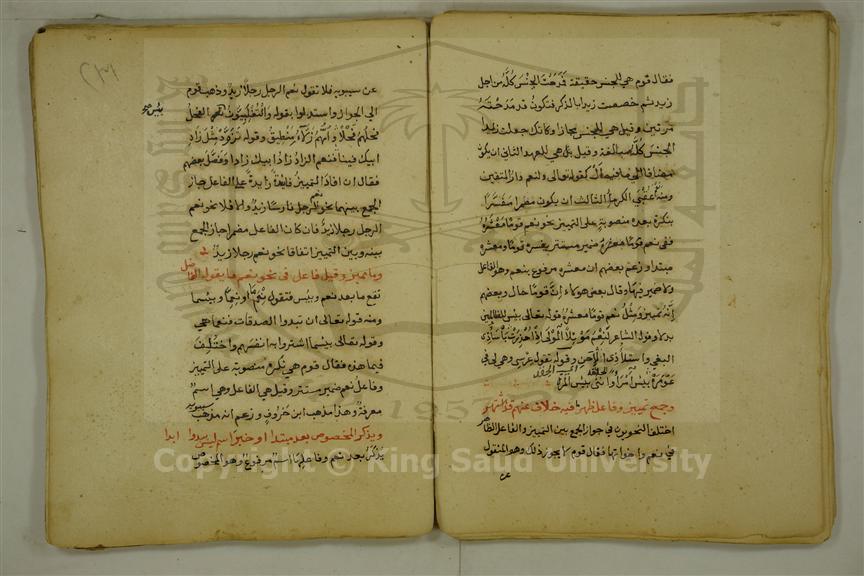 فقال قوم هي للجنس حقيقة فمدحت الجنس كله من اجل
زيد ثم خصصت زيدا بالذكر فتكون قد مدحته
مرتين وقيل هي للجنس مجازا وكانك جعلت زيدا
الجنس كله مبالغة وقيل بل هي للعهد الثاني ان يكون
مضافا الى ما فيه ال كقوله تعالى ولنعم دار المتقين
ومنه عقبى الكرما الثالث ان يكون مضمرا مفسرا
بنكرة بعده منصوبة على التمييز نحو نعم قوما معشره
ففي نعم قوما معشره ضمير مستتر يفسره قوما ومعشره
مبتدا وزعم بعضهم ان معشره مرفوع بنعم وهو الفاعل
ولا ضمير فيها وقال بعض هولاء ان قوما حال وبعضهم
انه تمييز ومثل نعم قوما معشره قوله تعالى بئس للظالمين
بدلا وقول الشاعر لنعم موئلا المولى اذا حذرت باساء ذي
البغي واستيلاء ذي الاحن وقوله تقول عرسي وهي لي في
عومرة بئس امرأ وانني بئس المرة
وجمع تمييز وفاعل ظهر فيه خلاف عنهم قد اشتهر
اختلف النحويون في جواز الجمع بين التمييز والفاعل الظاهر
في نعم واخواتها فقال قوم لا يجوز ذلك وهو المنقول
عن
عن سيبويه فلا تقول نعم الرجل رجلا زيد وذهب قوم
الى الجواز واستدلوا بقوله والتغلبيون نعم الفحل
بئس صح
فحلهم فحلا وامهم زلاء منطيق وقوله تزود مثل زاد
ابيك فينا فنعم الزاد زاد ابيك زادا وفصل بعضهم
فقال ان افاد التمييز فايدة زايدة على الفاعل جاز
الجمع بينهما نحو نعم الرجل فارسا زيد والا فلا نحو نعم
الرجل رجلا زيد فان كان الفاعل مضمرا جاز الجمع
بينه وبين التمييز اتفاقا نحو نعم رجلا زيد
وما مميز وقيل فاعل في نحو نعم ما يقول الفاضل
تقع ما بعد نعم وبئس فتقول نعم ما او نعما وبئسما
ومنه قوله تعالى ان تبدوا الصدقات فنعما هي
وقوله تعالى بئسما اشتروا به انفسهم واختلف
فيما هذه فقال قوم هي نكرة منصوبة على التمييز
وفاعل نعم ضمير مستتر وقيل هي الفاعل وهي اسم
معرفة وهذا مذهب ابن خروف وزعم انه مذهب سيبويه
ويذكر المخصوص بعد مبتدا او خبر اسم ليس يبدو ابدا
يذكر بعد نعم وفاعلها اسم مرفوع وهو المخصوص